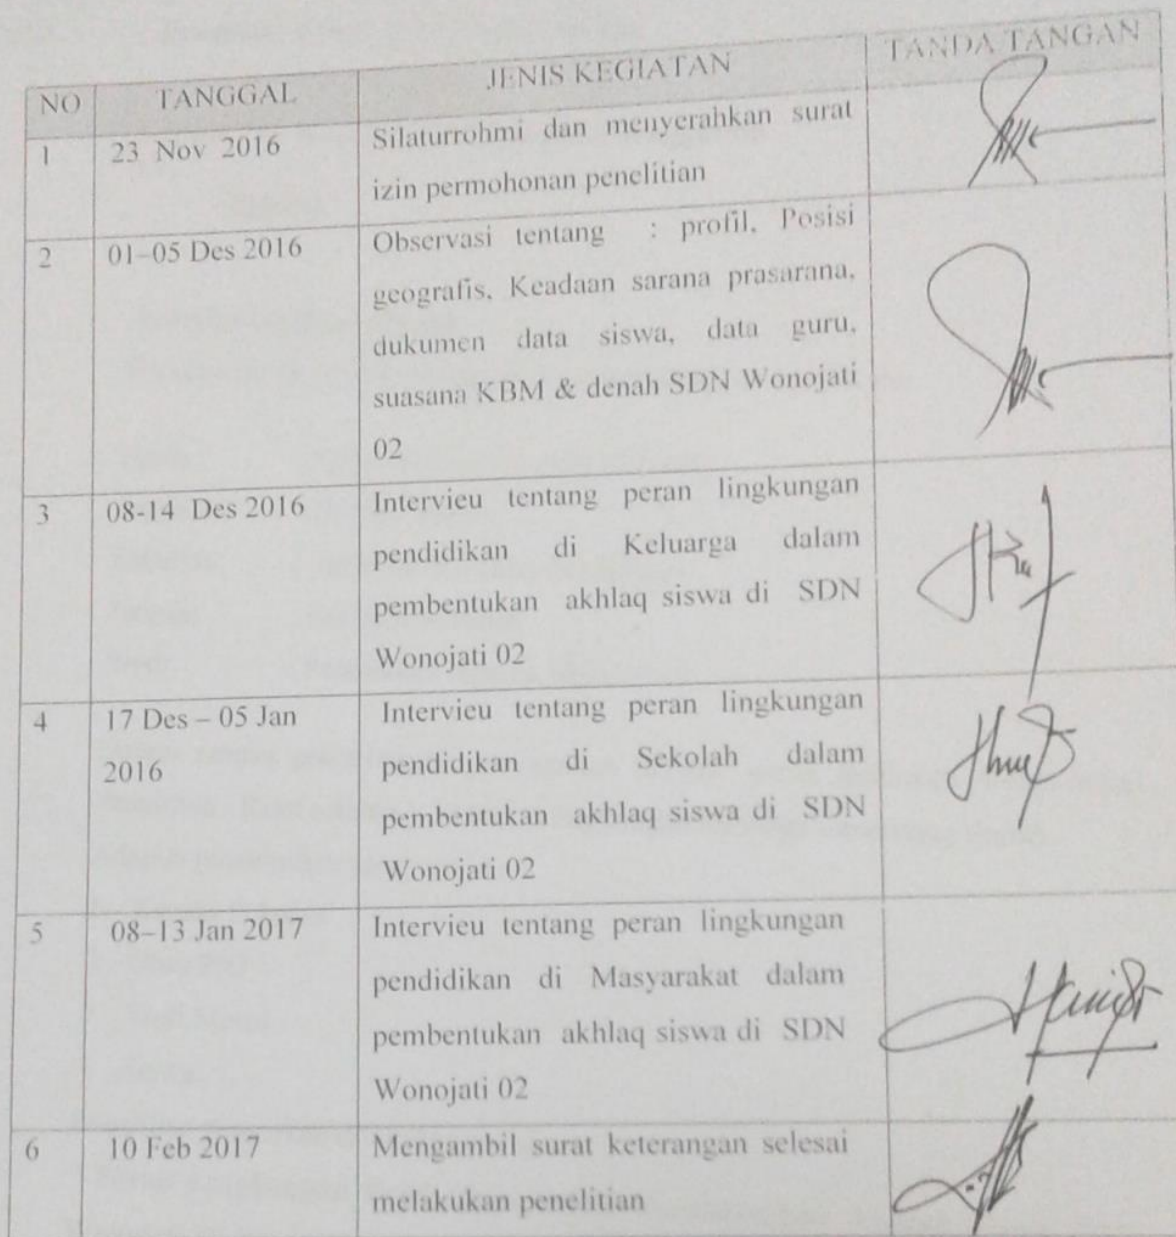 NO TANGGAL JENIS KEGIATAN TANDA TANGAN
1 23 Nov 2016 Silaturrohmi dan menyerahkan surat
izin permohonan penelitian
2 01–05 Des 2016 Observasi tentang : profil, Posisi
geografis, Keadaan sarana prasarana,
dukumen data siswa, data guru,
suasana KBM & denah SDN Wonojati
02
3 08-14 Des 2016 Intervieu tentang peran lingkungan
pendidikan di Keluarga dalam
pembentukan akhlaq siswa di SDN
Wonojati 02
4 17 Des – 05 Jan Intervieu tentang peran lingkungan
2016 pendidikan di Sekolah dalam
pembentukan akhlaq siswa di SDN
Wonojati 02
5 08–13 Jan 2017 Intervieu tentang peran lingkungan
pendidikan di Masyarakat dalam
pembentukan akhlaq siswa di SDN
Wonojati 02
6 10 Feb 2017 Mengambil surat keterangan selesai
melakukan penelitian